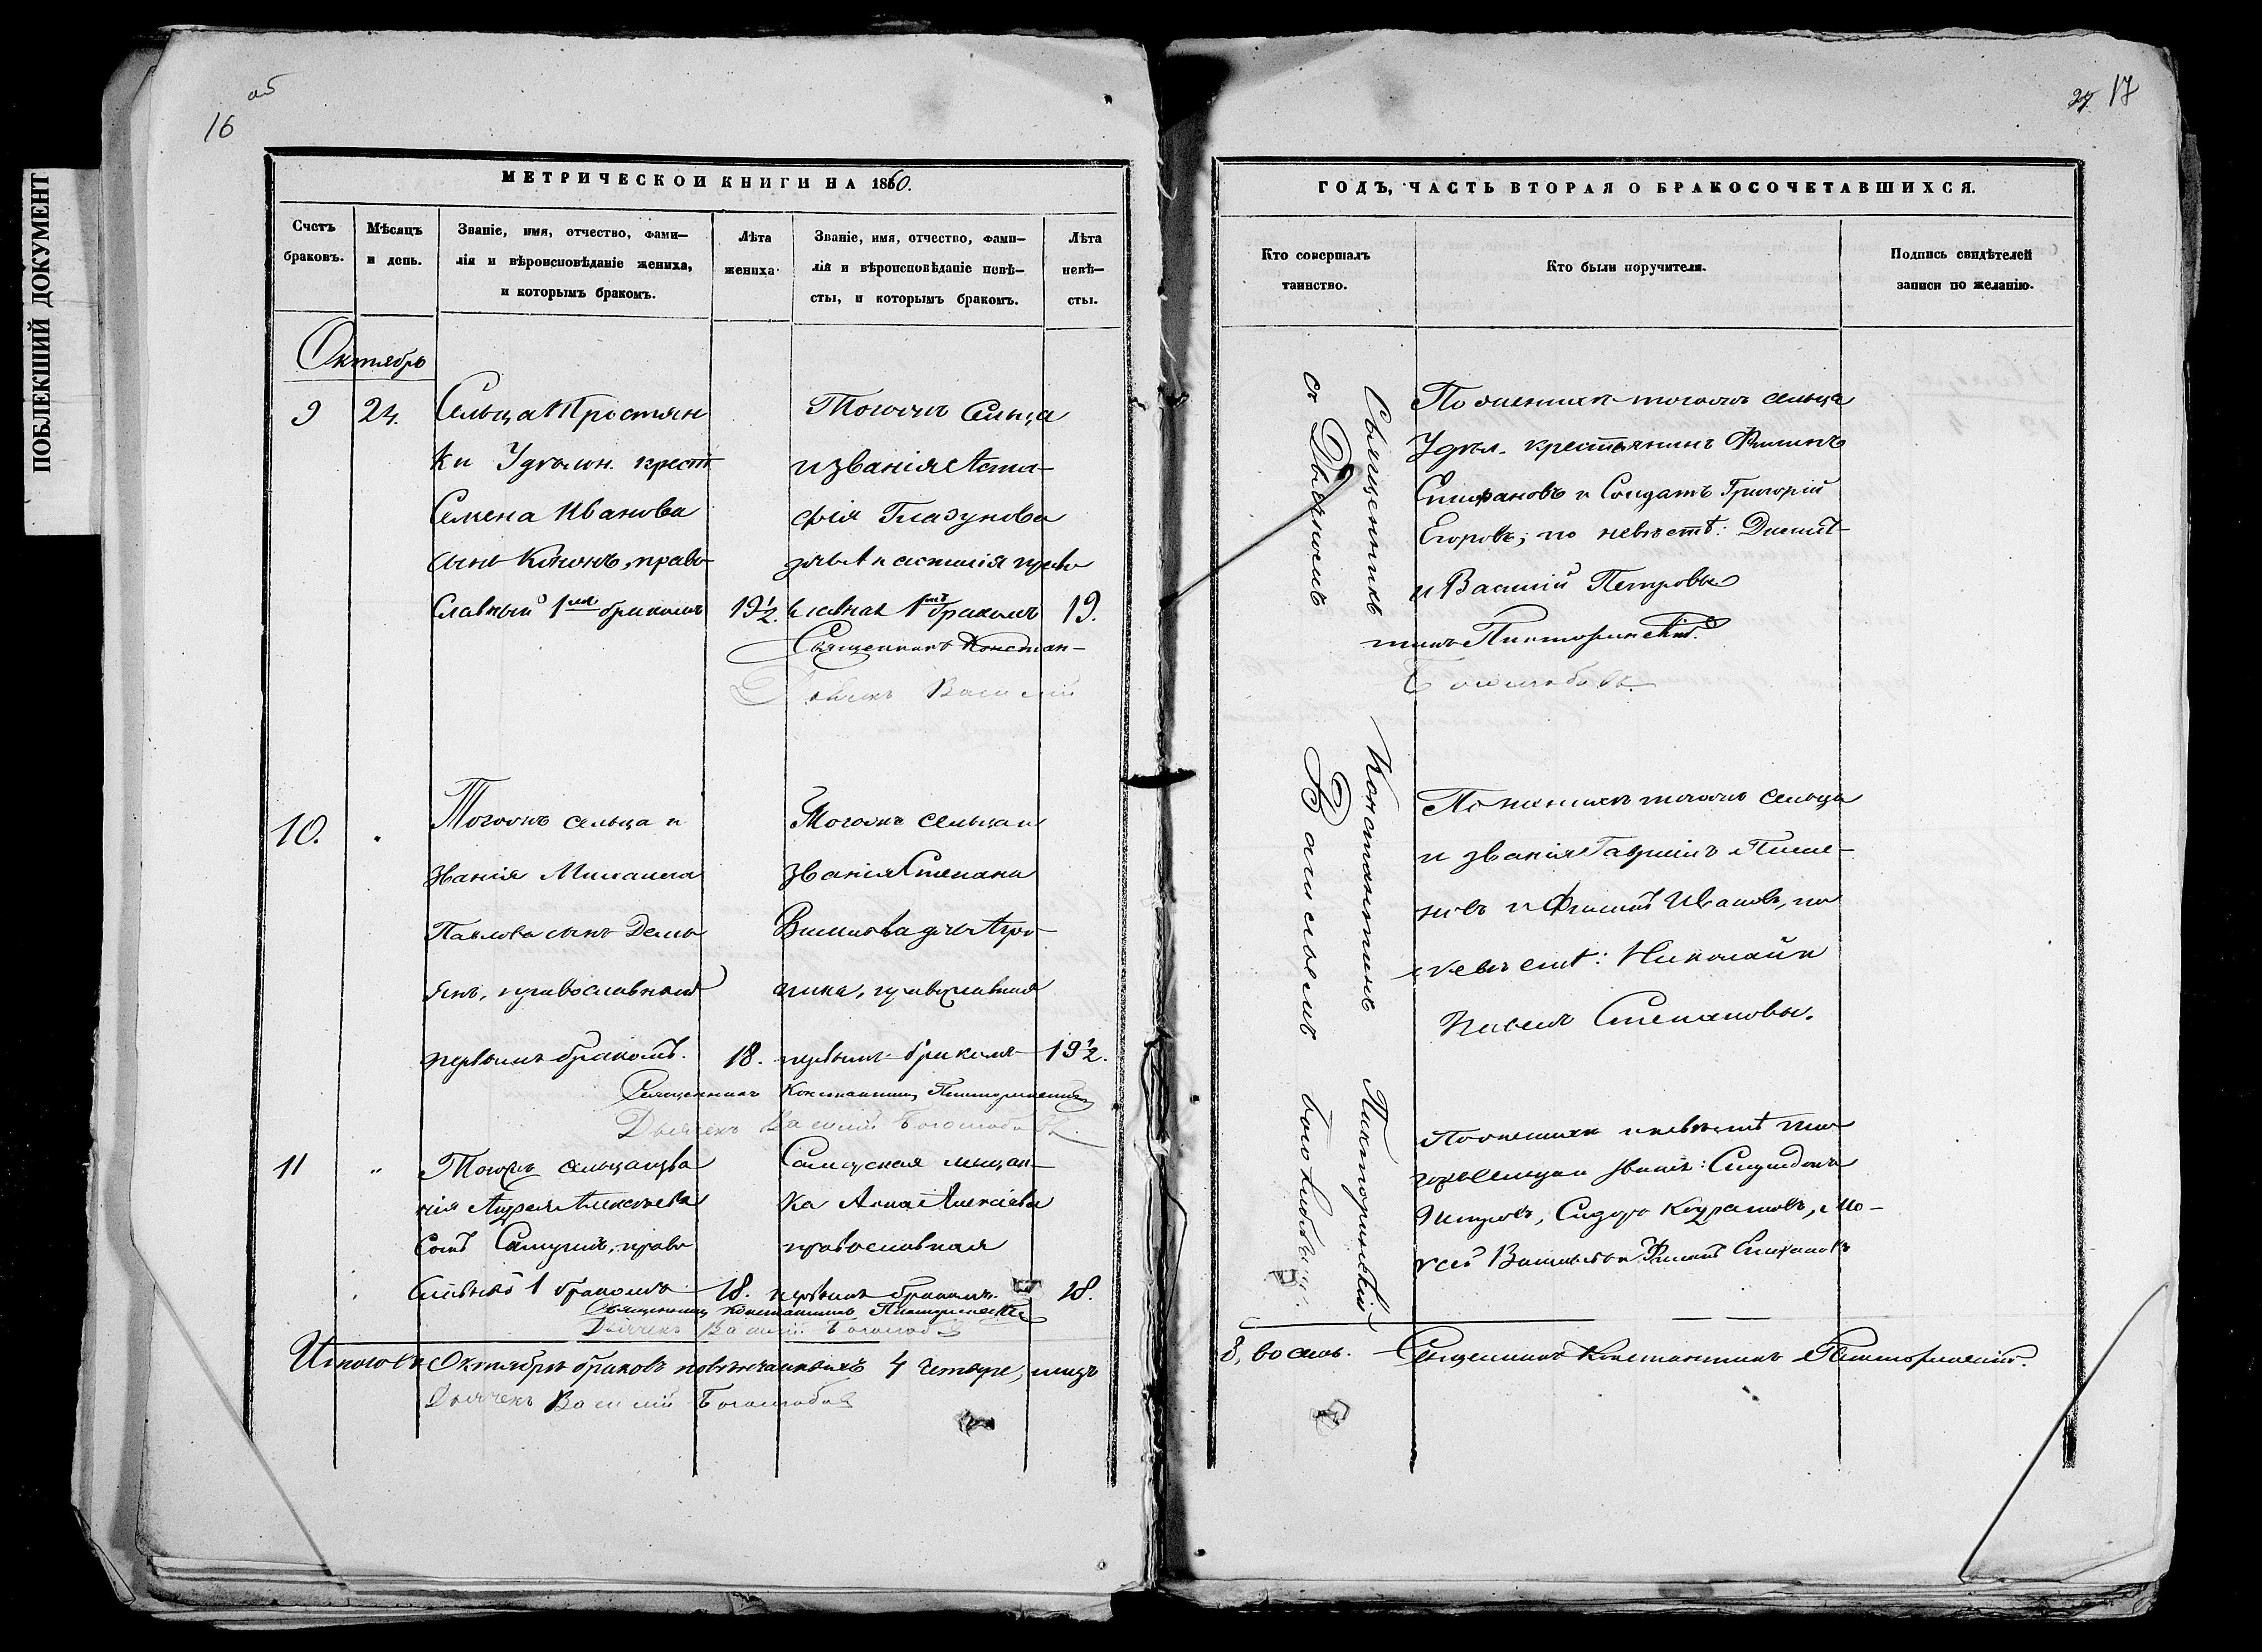 ПОБЛЕКШИЙ ДОКУМЕНТ
об
16
МЕТРИЧЕСКОЙ КНИГИ НА 1860.
Счетъ браковъ.
Мѣсяцъ и день.
Званіе, имя, отчество, фами-
лія и вѣроисповѣданіе жениха,
и которымъ бракомъ.
Лѣта жениха
Званіе, имя, отчество, фами-
лія и вѣроисповѣданіе невѣ-
сты, и которымъ бракомъ.
Лѣта невѣ-
сты.
Октябрь
9 24. Сельца Простян
ки Удѣльн. крест
Семена Иванова
сынъ Кононъ, право-
славный 1мъ бракомъ 19½.
Тогожъ сельца
и званія
Глазунова
дочь право
славная 1мъ бракомъ 19.
Священникъ Констан-
Дьячекъ Василій
10. "
Тогожъ сельца и
званія Михаила
Павлова сынъ Демь
янъ, православный
первымъ бракомъ. 18.
Тогожъ сельца и
званія Степана
дочь Агри-
пина, православная
первымъ бракомъ 19½.
Священникъ Константинъ Пикторинскій
Дьячекъ Василій Боголюбовъ.
11 "
Тогожъ сельца и зва
нія Андрея Алексѣева
сынъ право
славный 1 бракомъ 18.
мѣщан-
ка Анна Алексіева
православная
первымъ бракомъ. 18.
Священникъ Константинъ Пикторинскій
Дьячекъ Василій Боголюбовъ
Итого въ Октябрѣ браковъ повѣнчанныхъ 4 четыре,
Дьячекъ Василій Боголюбовъ
17
ГОДЪ, ЧАСТЬ ВТОРАЯ О БРАКОСОЧЕТАВШИХСЯ.
Кто совершалъ
таинство.
Кто были поручители.
Подпись свидѣтелей
записи по желанію.
Священникъ Константинъ Пикторинскій
съ Дьячкомъ Василіемъ Боголюбовымъ.
По женихѣ тогожъ сельца
Удѣл. крестьянинъ Филипъ
Епифановъ и Солдатъ Григорій
Егоровъ; по невѣстѣ:
и Василій Петровы
тинъ Пикторинскій.
Боголюбовъ.
По женихѣ тогожъ сельца
и званія Гавріилъ Пиме-
новъ и Филипъ Ивановъ, по
невѣстѣ: Николай и
Павелъ Степановы.
По женихѣ и невѣстѣ то
гожъ сельца и званія:
Сидоръ Кондратовъ, Мо-
исей Васильевъ и Филипъ Епифановъ
8, восемь. Священникъ Константинъ Пикторинскій.